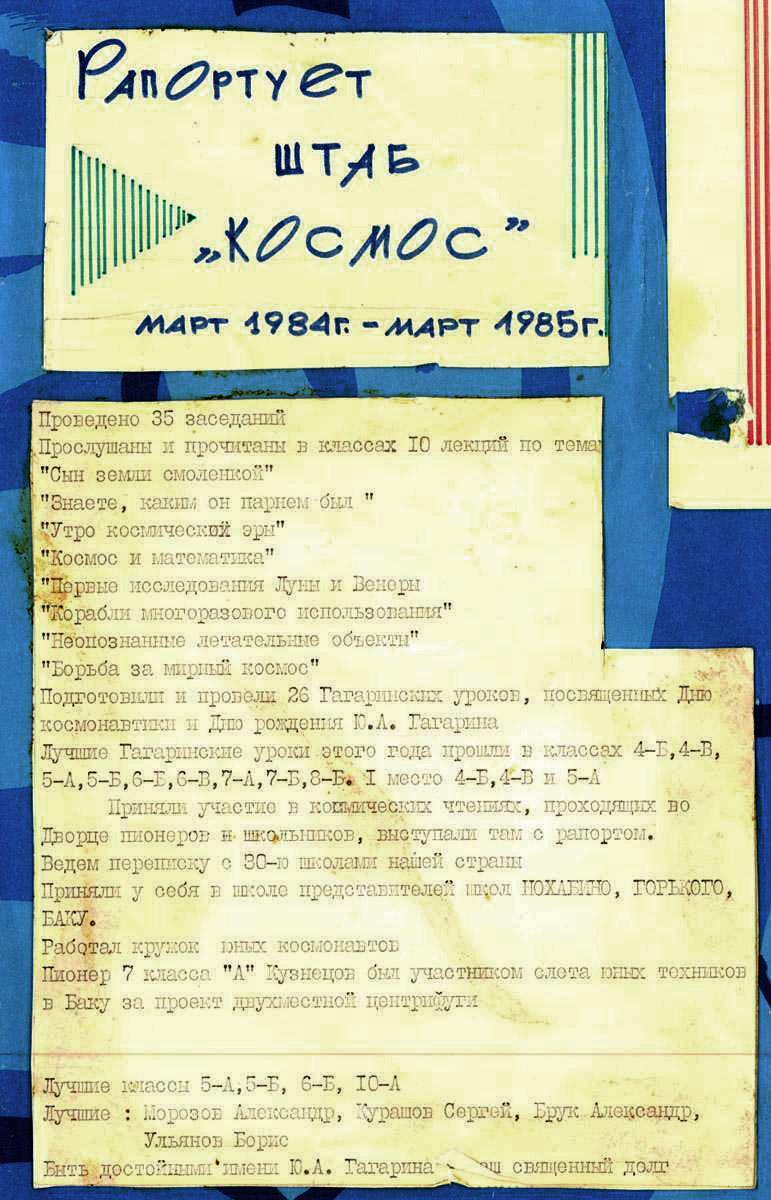 Рапортует
штаб
„Космос"
март 1984г. - март 1985г.
Проведено 35 заседаний
Прослушаны и прочитаны в классах I0 лекций по тема
"Сын земли смоленкой"
"Знаете, каким он парнем был "
"Утро космический эры"
"Космос и математика"
"Первые исследования Луны и Венеры
"Корабли многоразового использования"
"Неопознанные летательные объекты"
"Борьба за мирный космос"
Подготовили и провели 26 Гагаринских уроков, посвященных Дню
космонавтики и Дню рождения Ю.А. Гагарина
Лучшие Гагаринские уроки этого года прошли в классах 4-Б,4-В,
5-А,5-Б,6-Б,6-В,7-А,7-Б,8-Б. I место 4-Б,4-В и 5-А
Приняли участие в космических чтениях, проходящих во
Дворце пионеров и школьников, выступали там с рапортом.
Ведем переписку с 30-ю школами нашей страны
Приняли у себя в школе представителей школ НОХАБИНО, ГОРЬКОГО,
БАКУ.
Работал кружок юных космонавтов
Пионер 7 класса "А" Кузнецов был участником слета юных техников
в Баку за проект двухместной центрифуги
Лучшие классы 5-А,5-Б, 6-Б, I0-А
Лучшие : Морозов Александр, Курашов Сергей, Брук Александр,
Ульянов Борис
Быть достойными имени Ю.А. Гагарина - аш священный долг